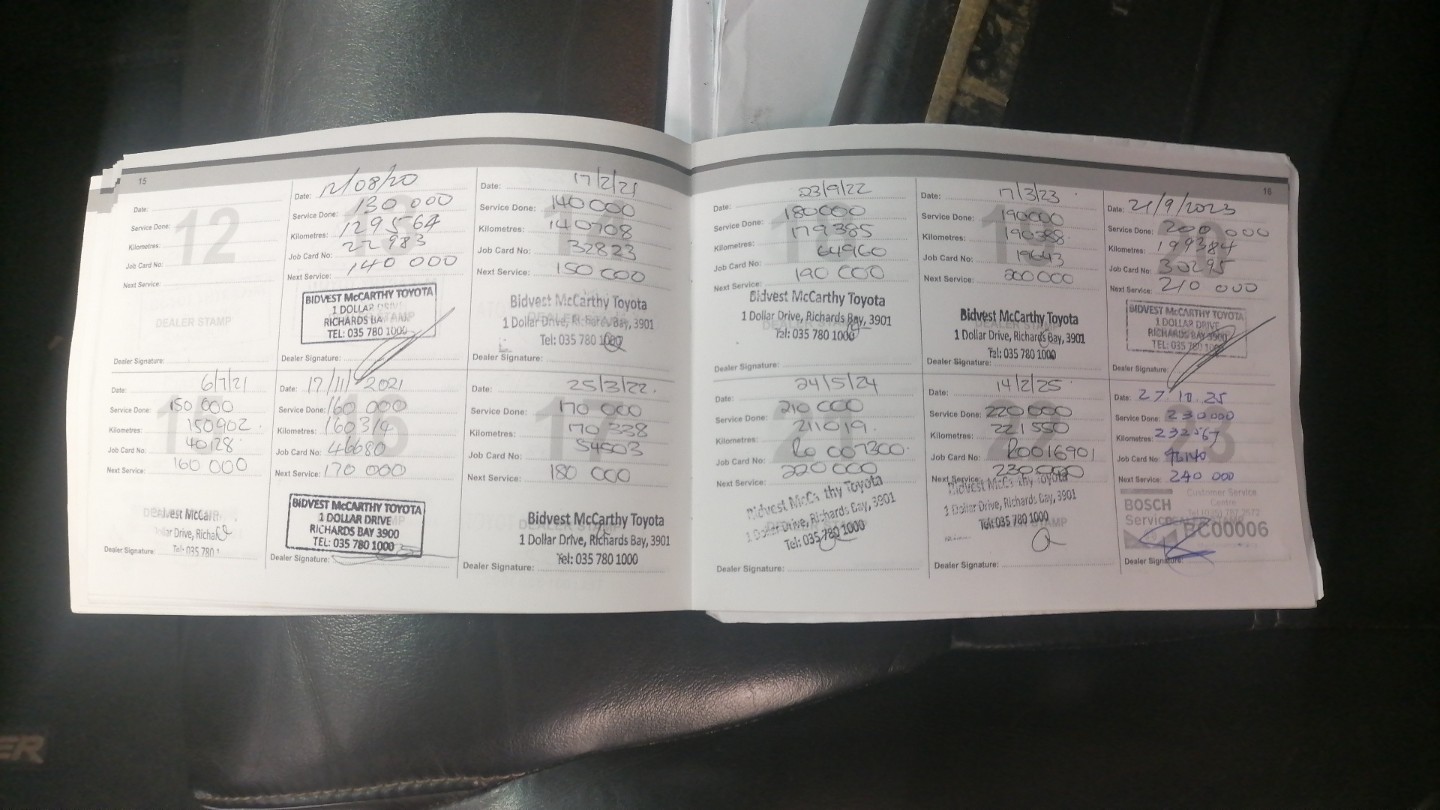 15
12
Date:
Service Done:
Kilometres:
Job Card No:
Next Service:
DEALER STAMP
Dealer Signature:
Date: 12/08/20
Service Done: 130 000
Kilometres: 129564
Job Card No: 22983
Next Service: 140 000
BIDVEST McCARTHY TOYOTA
1 DOLLAR DRIVE
RICHARDS BAY
TEL: 035 780 1000
Dealer Signature:
Date: 17/2/21
Service Done: 140000
Kilometres: 140708
Job Card No: 32823
Next Service: 150 000
Bidvest McCarthy Toyota
1 Dollar Drive, Richards Bay, 3901
Tel: 035 780 1000
Dealer Signature:
Date: 6/7/21
Service Done: 150 000
Kilometres: 150902
Job Card No: 40128
Next Service: 160 000
Drive, Richa
Tel: 035 780 1
Dealer Signature:
16
Date: 17/11/2021
Service Done: 160 000
Kilometres: 160314
Job Card No: 46680
Next Service: 170 000
BIDVEST McCARTHY TOYOTA
1 DOLLAR DRIVE
RICHARDS BAY 3900
TEL: 035 780 1000
Dealer Signature:
17
Date: 25/3/22
Service Done: 170 000
Kilometres: 170338
Job Card No: 54503
Next Service: 180 000
Bidvest McCarthy Toyota
1 Dollar Drive, Richards Bay, 3901
Tel: 035 780 1000
Dealer Signature:
16
Date: 23/9/22
Service Done: 180000
Kilometres: 179385
Job Card No: 64960
Next Service: 190 000
Bidvest McCarthy Toyota
1 Dollar Drive, Richards Bay, 3901
Tel: 035 780 1000
Dealer Signature:
Date: 17/3/23
Service Done: 190000
Kilometres: 190388
Job Card No: 19643
Next Service: 200000
Bidvest McCarthy Toyota
1 Dollar Drive, Richards Bay, 3901
Tel: 035 780 1000
Dealer Signature:
Date: 21/9/2023
Service Done: 200 000
Kilometres: 199384
Job Card No: 30295
Next Service: 210 000
BIDVEST McCARTHY TOYOTA
1 DOLLAR DRIVE
RICHARDS BAY 3900
TEL: 035 780 1000
Dealer Signature:
Date: 24/5/24
Service Done: 210 000
Kilometres: 211019
Job Card No: Ro 007300
Next Service: 220000
Bidvest McCarthy Toyota
1 Dollar Drive, Richards Bay, 3901
Tel: 035 780 1000
Dealer Signature:
22
Date: 14/2/25
Service Done: 220000
Kilometres: 221550
Job Card No: R0016901
Next Service: 230000
Bidvest McCarthy Toyota
1 Dollar Drive, Richards Bay, 3901
Tel: 035 780 1000
Dealer Signature:
23
Date: 27.10.25
Service Done: 230000
Kilometres: 232267
Job Card No:
Next Service: 240 000
BOSCH
Service
Customer Service
Centre
BC00006
Dealer Signature: